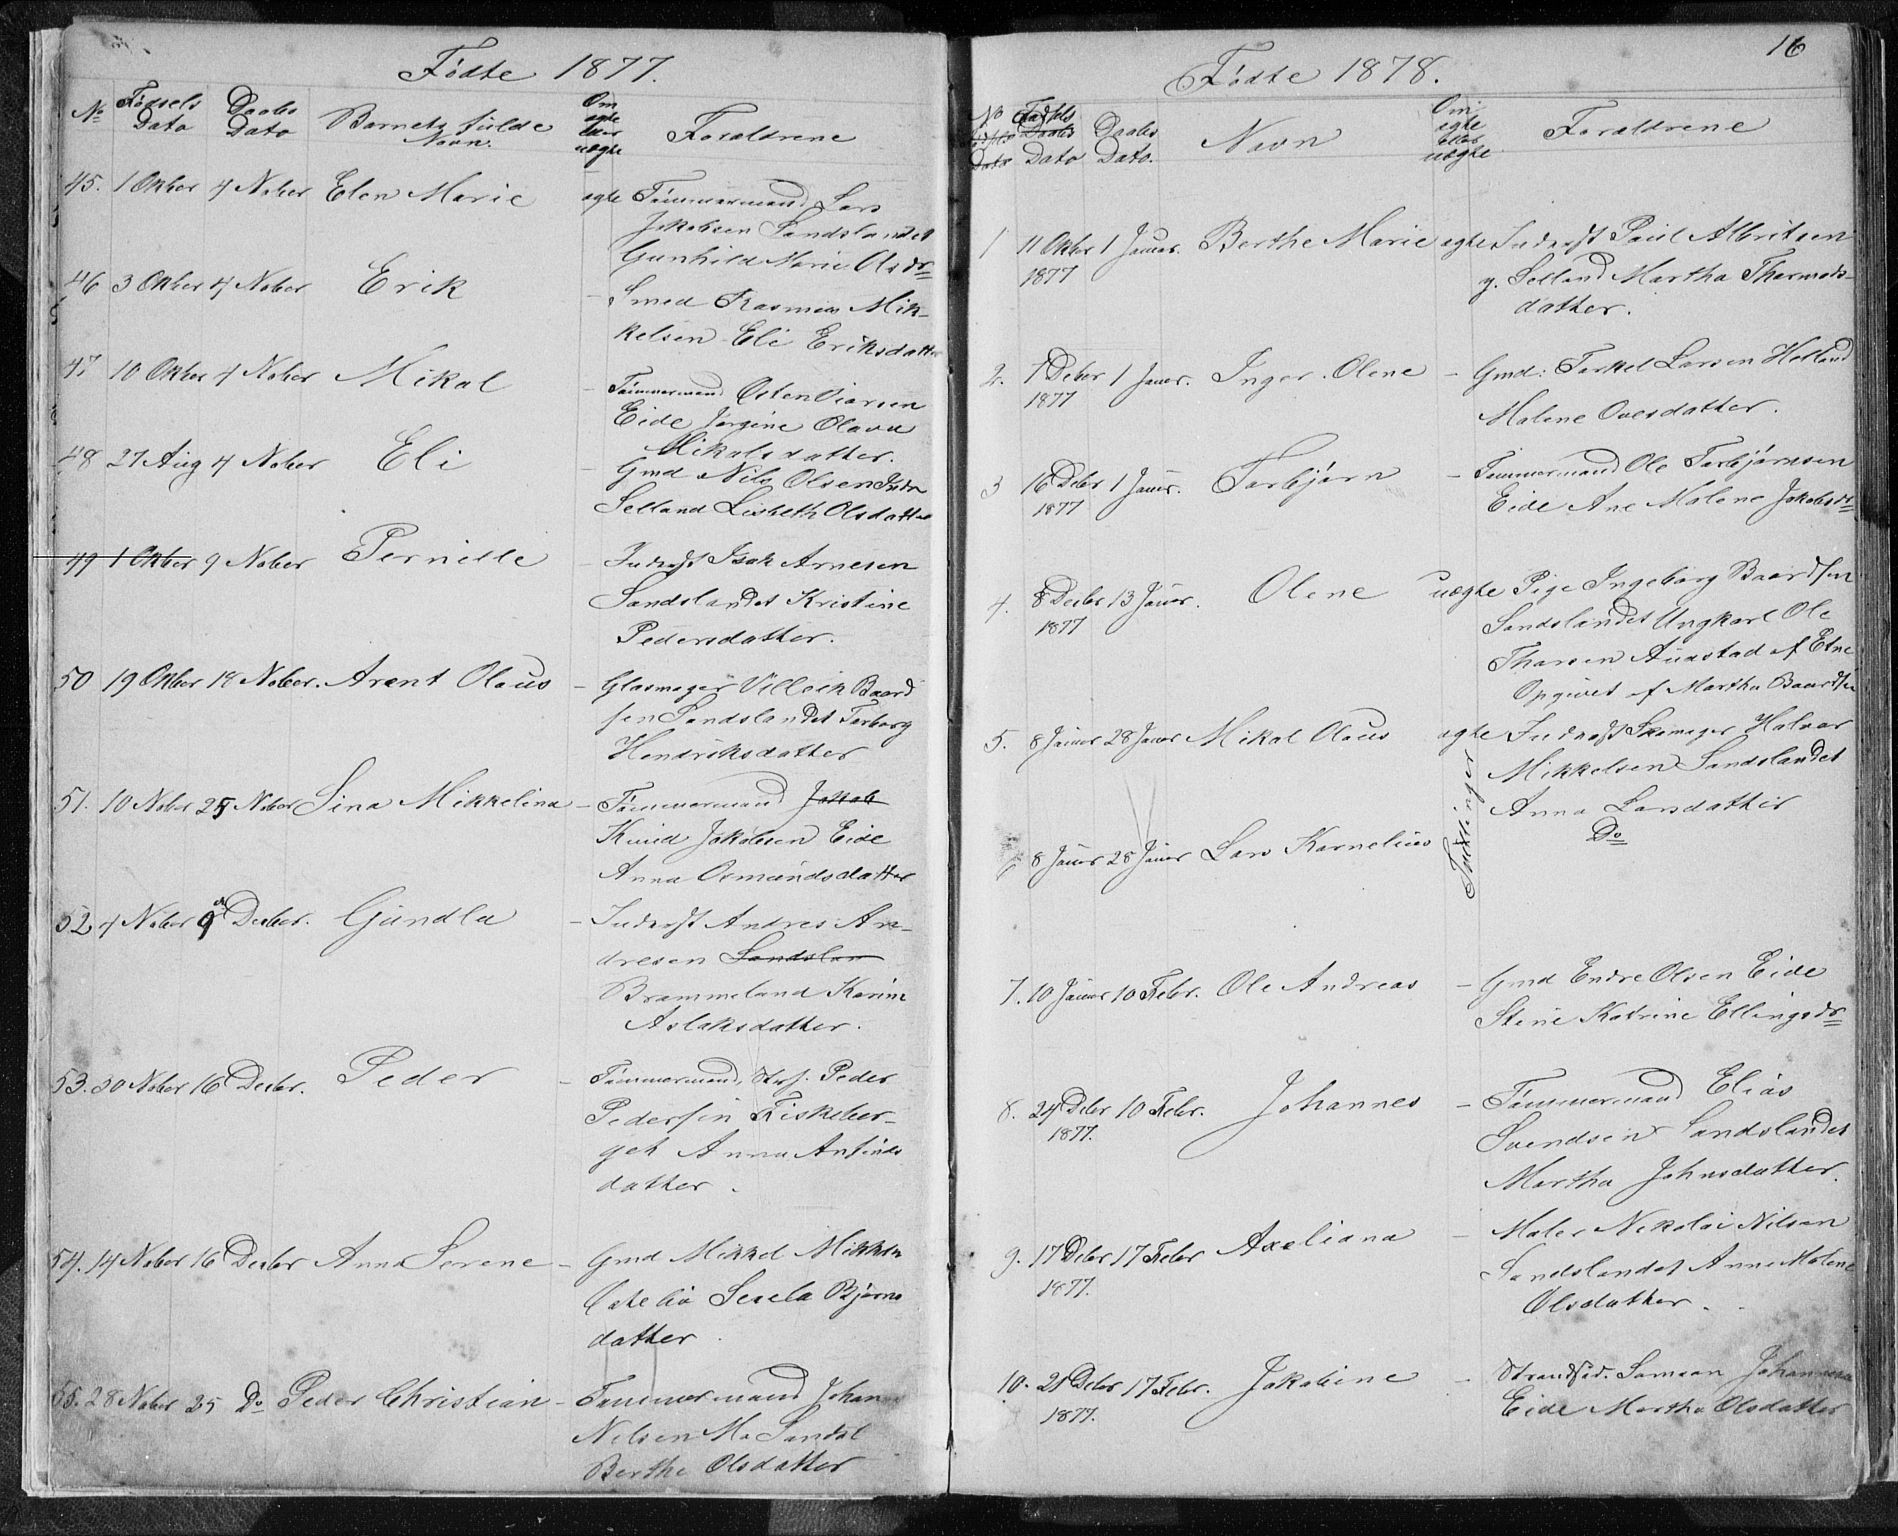 Fødte 1877.
No Fødsels Dato Daabs Dato Barnets fulde Navn. Om ægte eller uægte Forældrene
45. 1 Oktber 4 Novber Elen Marie ægte Tømmermand Lars
Jakobsen Sandslandet
Gunhild Marie Olsdr
46 3 Oktber 4 Novber Erik - Smed Rasmus Mik-
kelsen Eli Eriksdatter
47 10 Oktber 4 Novber Mikal - Tømmermand Osten
Eide Jørgine Olava
Mikalsdatter.
48 27 Aug 4 Novber Eli - Gmd Nils Olsen Indre
Selland Lisbeth Olsdatter
49 1 Oktber 9 Novber Pernille - Indrst Isak Arnesen
Sandslandet Kristine
Pedersdatter.
50 19 Oktber 18 Novber. Arent Olaus - Glasmager Villeik Baard
sen Sandslandet Torborg
Hendriksdatter
51. 10 Novber 25 Novber Sina Mikkelina - Tømmermand Jakob
Knud Jakobsen Eide
Anna Osmundsdatter
52 4 Novber 9 Decber. Gundla - Indrst Andres An-
dresen Sandslan
Brammeland Karine
Aslaksdatter.
53. 30 Novber 16 Decber. Peder - Tømmermand, Peder
Pedersen Fiskeber-
get Anna Anfinds
datter.
54. 14 Novber 16 Decber Anna Serene - Gmd Mikkel Mikkelsen
Sesela Bjørns
datter.
55. 28 Novber 25 Do Peder Christian - Tømmermand Johannes
Nilsen Sandsl
Berthe Olsdatter
16
Fødte 1878.
No Fødsels Dato Daabs Dato. Navn Om ægte eller uægte Forældrene
1 11 Oktber 1 Januar. Berthe Marie ægte Indrst Paul Albritsen
1877 y. Selland Martha Thormods-
datter.
2. 1 Decber 1 Januar. Inger Olene - Gmd: Torkel Larsen Hetland
1877 Malene Ovesdatter.
3 16 Decbr 1 Januar. Torbjørn - Tømmermand Ole Torbjørnsen
1877 Eide Ane Malene Jakobsdr
4. 8 Decbr 13 Januar. Olene uægte Pige Ingeborg Baardsen
1877 Sandslandet Ungkarl Ole
Thorsen Austad af Etne
Opgivet af Martha Baardsen
5. 8 Januar 28 Januar Mikal Olaus ægte Indrst Skomager Halvor
Mikkelsen Sandslandet
Anna Larsdatter
6 8 Januar 28 Januar Lars Karnelius Tvillinger Do
7. 10 Januar 10 Febr. Ole Andreas - Gmd Endre Olsen Eide
Stine Katrine Ellingsdr
8. 24 Decbr 10 Febr. Johannes - Tømmermand Elias
1877. Svendsen Sandslandet
Martha Johnsdatter.
9. 17 Decbr 17 Febr Axeliana - Maler Nikolai Nilsen
1877. Sandslandet Anne Malene
Olsdatter.
10. 21 Decbr 17 Febr. Jakobine - Strandsid. Samson Johannesen
1877. Eide Martha Olsdatter